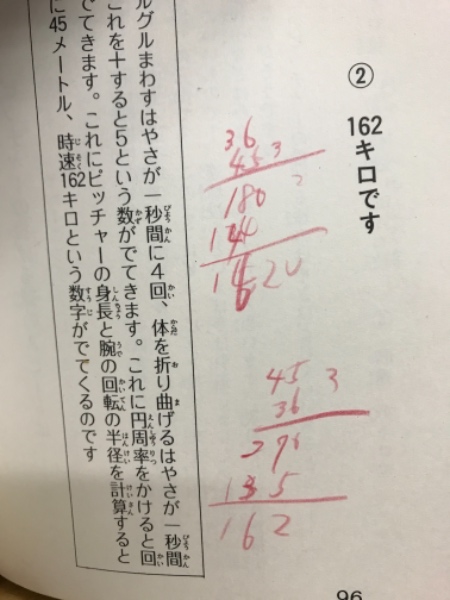 ②
162キロです
36
45 3
180
144
1620
45 3
36
135
162
ルグルまわすはやさが一秒間に4回、体を折り曲げるはやさが一秒間
これを＋すると5という数がでてきます。これに円周率をかけると回
でてきます。これにピッチャーの身長と腕の回転の半径を計算すると
に45メートル、時速162キロという数字がでてくるのです
96